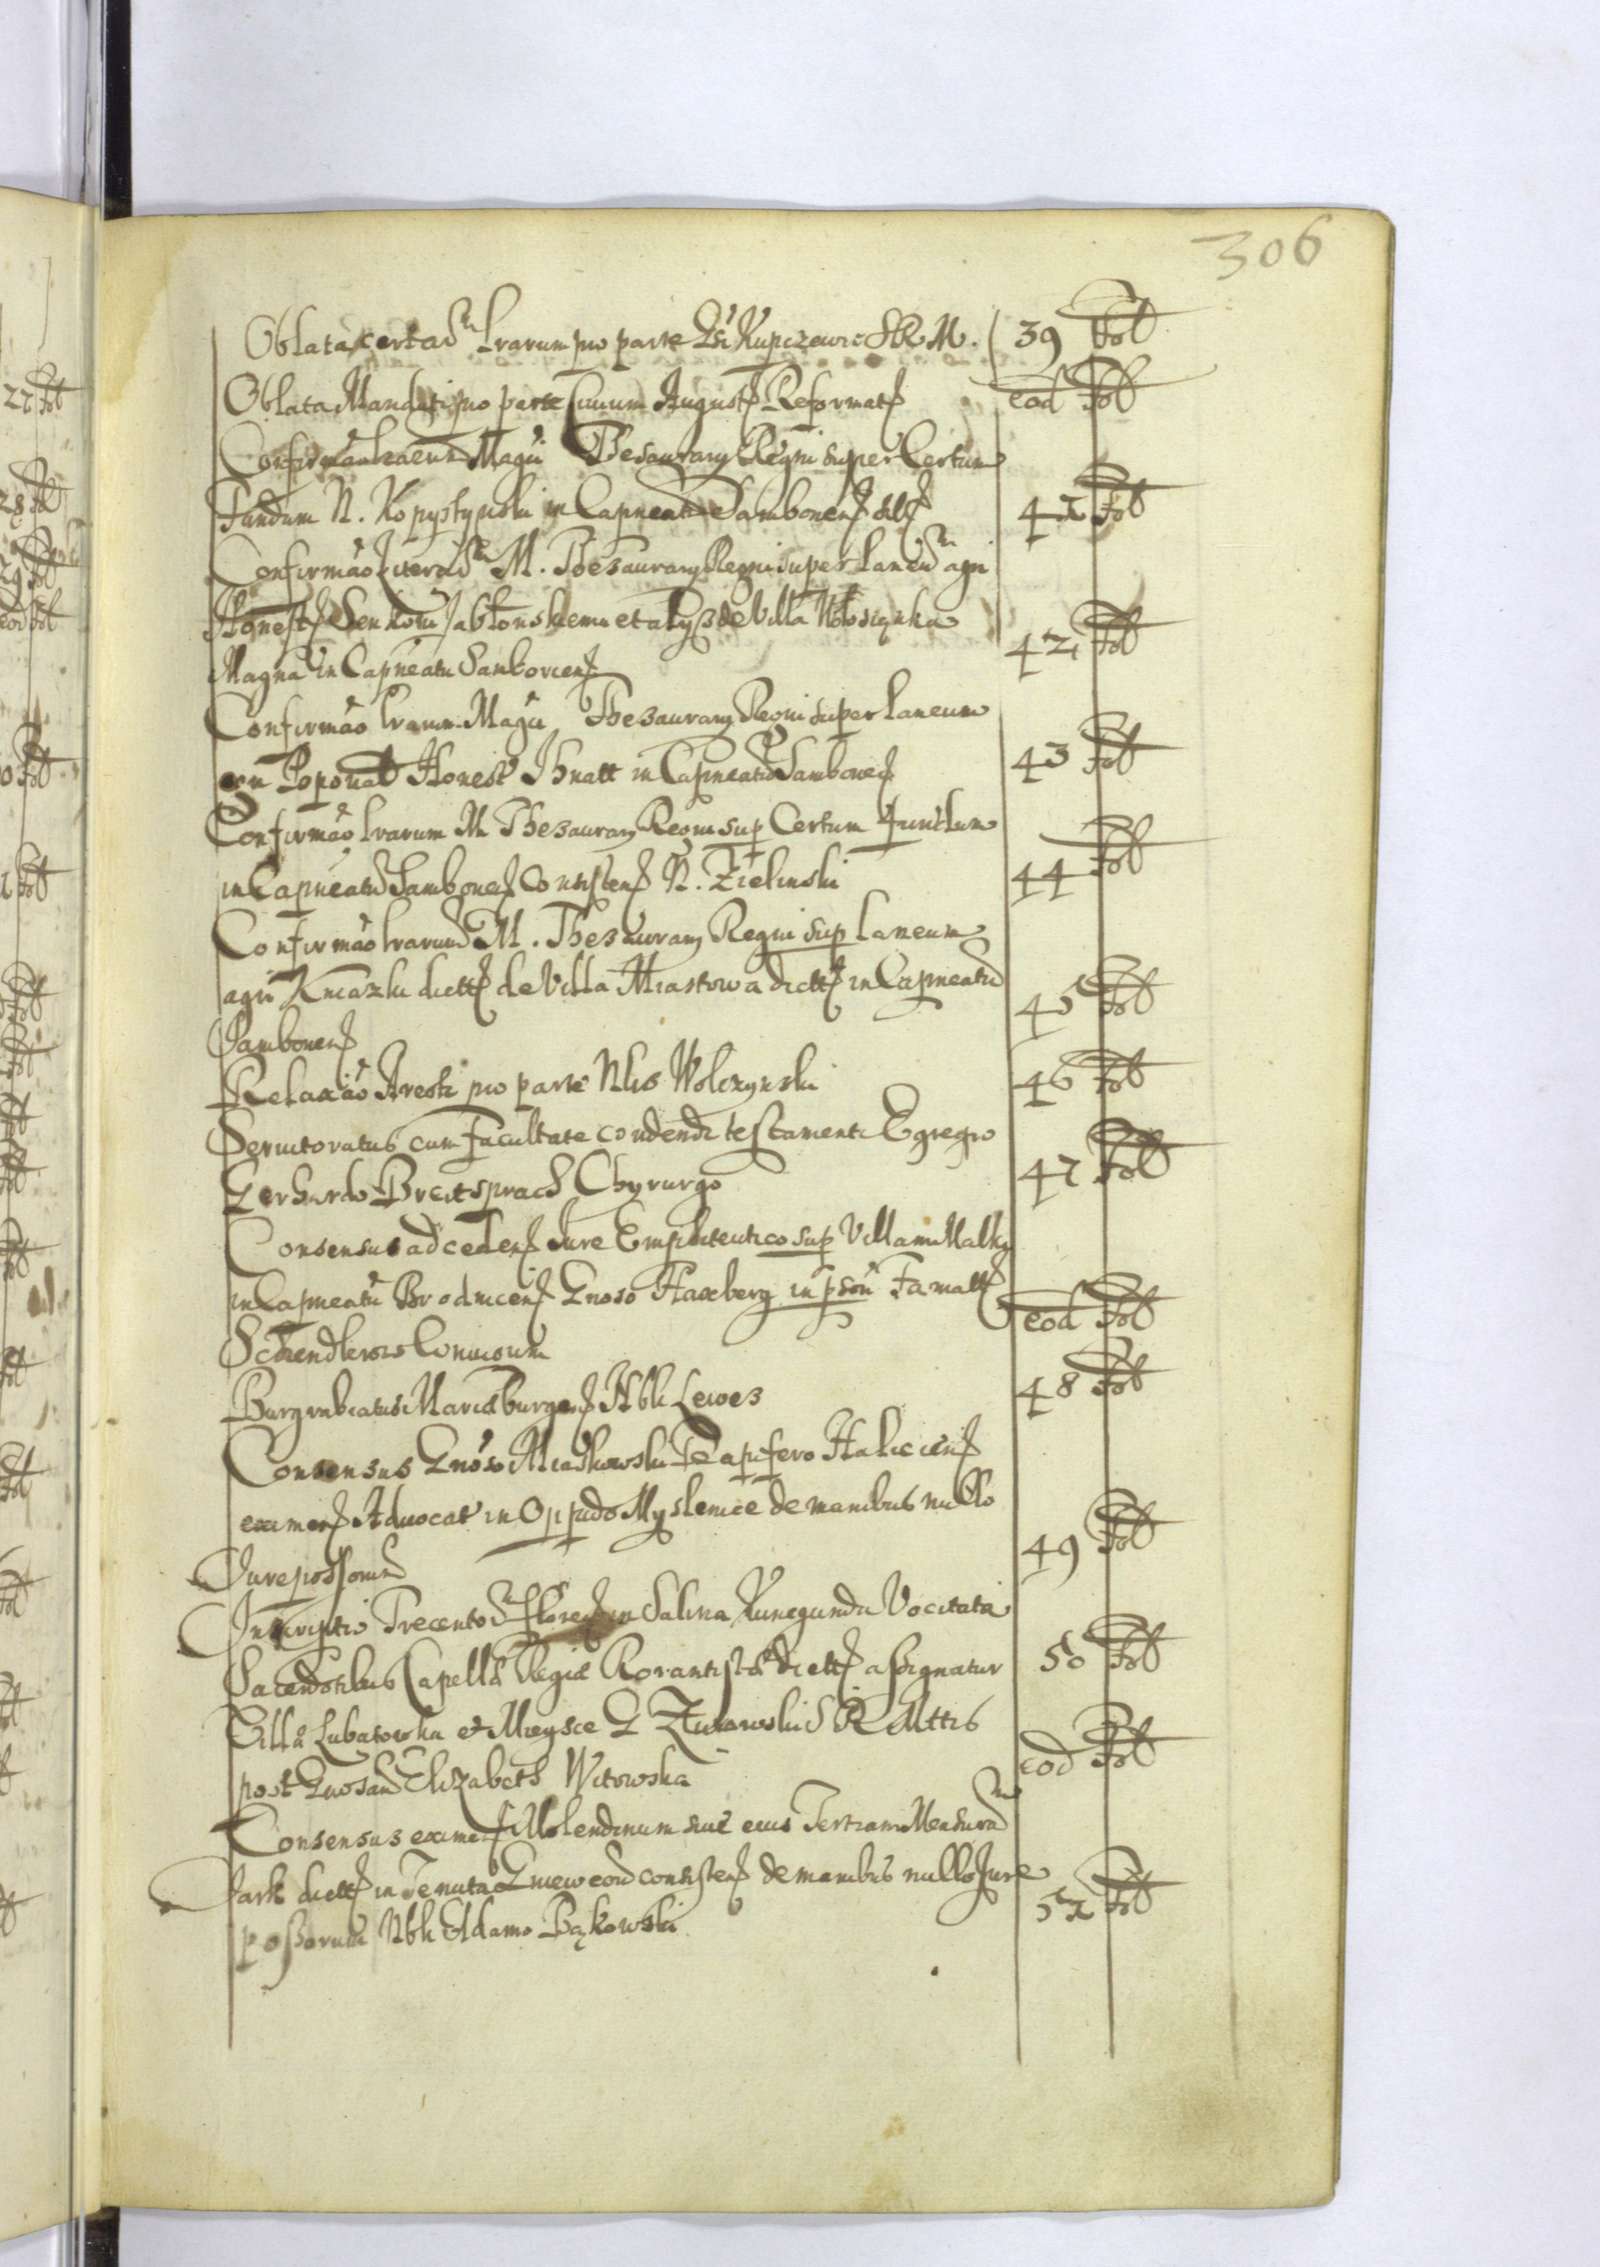 306
Oblata certaru lrarum pro parte Gsi Kupczewic SRM. 39 fol
Oblata Mandati pro parte Civium August Reformat eod fol
Confirmao lrarum Magci Thesaurary Regni super Certum
Fundum N. Kopystynski in Capneatu Samborien 41 fol
Confirmao literaru M. Thesaurary Regni super Laneu agri
Honest Senkowi Jabłonskiemu et alys de Villa Wołosianka
Magna in Capneatu Samborien 42 fol
Confirmao lrarum Magci Thesaurary Regni super Laneum
Poponat Honest Ihnatt in Capneatu Samborien 43 fol
Confirmao lrarum M Thesaurary Regni sup Certum
in Capneatu Samborien Consisten N. Zielinski 44 fol
Confirmao lrarum M. Thesaurary Regni sup Laneum
agri Kniazki dict de Villa Miastowa dict in Capneatu 45 fol
Samborien
Relaxao Aresti pro parte Nlis Wolczynski 46 fol
Servitoratus cum facultate condendi testamenti Egregio
Gerhardo Breitsprach Chyrurgo 47 fol
Consensus ad ceden Jure Emphiteutico sup Villam Malky
in Capneatu Brodnicen Gnoso Haxberg in pson Famatt eod fol
Schendlerow Coniugum
Burgrabiatus Mariaeburgen Nbli Lewes 48 fol
Consensus Gnoso Miaskowski Dapifero Halicien
eximen Advocat in Oppido Myslenice de manibus nullo 49 fol
Jure possorum
Inscriptio Trecento floren in Salina Kunegunda Vocitata
Sacerdotibus Capella Regia Rorantista dict assignatur 50 fol
Villa Lubatowka et Mieysce G Zurowski S R Mttis
post Gnosam Elizabeth Witowska eod fol
Consensus eximen Molendinum sive eius Tertiam Mensura
Jark dict in Tenuta Gniewcou consisten de manibus nullo Jure
possorum Nbli Adamo Bąkowski 51 fol